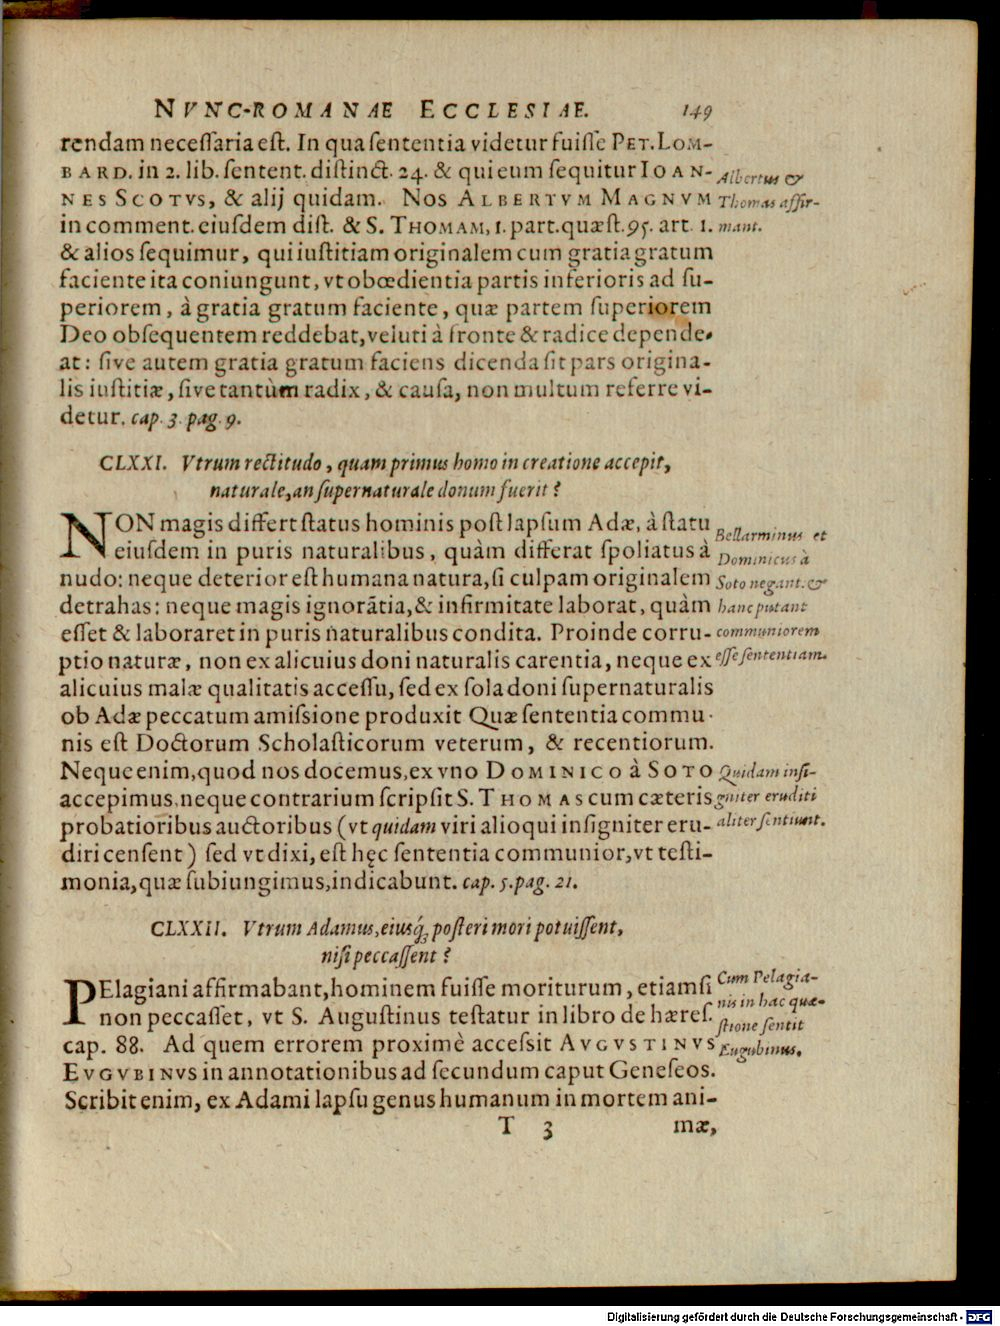 NVNC-ROMANAE ECCLESIAE. 149
rendam necessaria est. In qua sententia videtur fuisse PET. LOM-
BARD. in 2. lib. sentent. distinct. 24. & qui eum sequitur IOAN-
NES SCOTVS, & alij quidam. Nos ALBERTVM MAGNVM
in comment. eiusdem dist. & S. THOMAM, 1. part. quæst. 95. art. 1.
& alios sequimur, qui iustitiam originalem cum gratia gratum
faciente ita coniungunt, vt obœdientia partis inferioris ad su-
periorem, à gratia gratum faciente, quæ partem superiorem
Deo obsequentem reddebat, veluti à fronte & radice depende-
at: sive autem gratia gratum faciens dicenda sit pars origina-
lis iustitiæ, sive tantùm radix, & causa, non multum referre vi-
detur. cap. 3. pag. 9.
Albertus &
Thomas affir-
mant.
CLXXI. Vtrum rectitudo, quam primus homo in creatione accepit,
naturale, an supernaturale donum fuerit?
NON magis differt status hominis post lapsum Adæ, à statu
eiusdem in puris naturalibus, quàm differat spoliatus à
nudo: neque deterior est humana natura, si culpam originalem
detrahas: neque magis ignorãtia, & infirmitate laborat, quàm
esset & laboraret in puris naturalibus condita. Proinde corru-
ptio naturæ, non ex alicuius doni naturalis carentia, neque ex
alicuius malæ qualitatis accessu, sed ex sola doni supernaturalis
ob Adæ peccatum amissione produxit Quæ sententia commu-
nis est Doctorum Scholasticorum veterum, & recentiorum.
Neque enim, quod nos docemus, ex vno DOMINICO à SOTO
accepimus, neque contrarium scripsit S. THOMAS cum cæteris
probatioribus auctoribus (vt quidam viri alioqui insigniter eru-
diri censent) sed vt dixi, est hęc sententia communior, vt testi-
monia, quæ subiungimus, indicabunt. cap. 5. pag. 21.
Bellarminus et
Dominicus à
Soto negant. &
hanc putant
communiorem
esse sententiam.
Quidam insi-
gniter eruditi
aliter sentiunt.
CLXXII. Vtrum Adamus, eiusq́; posteri mori potuissent,
nisi peccassent?
PElagiani affirmabant, hominem fuisse moriturum, etiamsi
non peccasset, vt S. Augustinus testatur in libro de hæres.
cap. 88. Ad quem errorem proximè accessit AVGVSTINVS
EVGVBINVS in annotationibus ad secundum caput Geneseos.
Scribit enim, ex Adami lapsu genus humanum in mortem ani-
Cum Pelagia-
nis in hac quæ-
stione sentit
Eugubinus.
T 3 mæ,
Digitalisierung gefördert durch die Deutsche Forschungsgemeinschaft - DFG